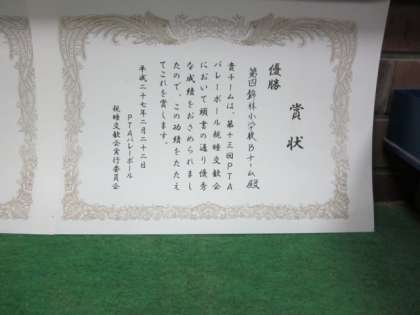 賞状
優勝
第四錦林小学校Bチーム殿
貴チームは、第十三回PTA
バレーボール親睦交歓会
において頭書の通り優秀
な成績をおさめられまし
たので、この功績をたたえ
てこれを賞します。
平成二十七年二月二十二日
PTAバレーボール
親睦交歓会実行委員会